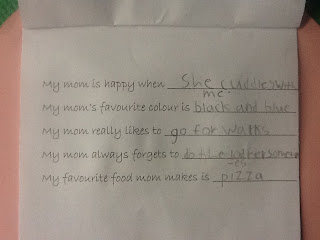 My mom is happy when She cuddles with
me.
My mom's favourite colour is black and blue
My mom really likes to go for walks
My mom always forgets to
My favourite food mom makes is pizza